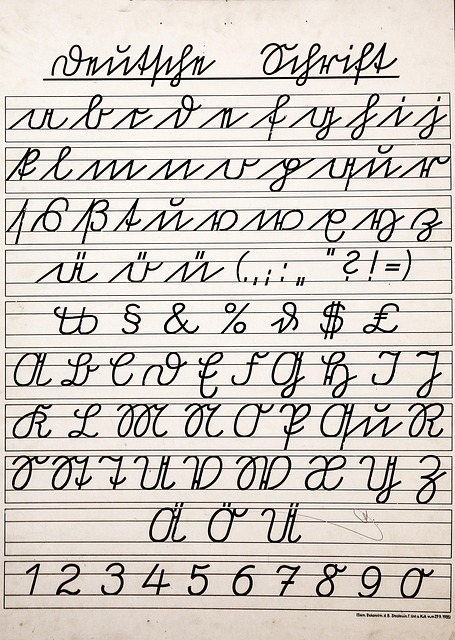 Deutsche Schrift
a b c d e f g h i j
k l m n o p qu r
ſ s ß t u v w x y z
ä ö ü (., ; : „ " ? ! =)
℔ § & % ₰ $ £
A B C D E F G H I J
K L M N O P Qu R
S St T U V W X Y Z
Ä Ö Ü
1 2 3 4 5 6 7 8 9 0